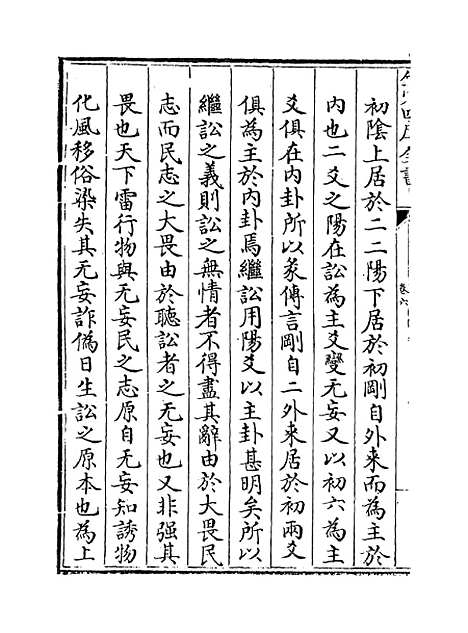 初陰上居於二二陽下居於初剛自外來而為主於
内也二爻之陽在訟為主爻變无妄又以初六為主
爻俱在内卦所以彖傳言剛自二外來居於初兩爻
俱為主於内卦焉繼訟用陽爻以主卦甚明矣所以
繼訟之義則訟之無情者不得盡其辭由於大畏民
志而民志之大畏由於聽訟者之无妄也又非强其
畏也天下雷行物與无妄民之志原自无妄知誘物
化風移俗染失其无妄詐偽日生訟之原本也為上